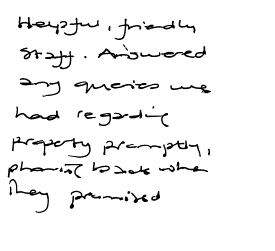 Helpful, friendly
staff. Answered
any queries we
had regarding
property promptly,
phoning back when
they promised